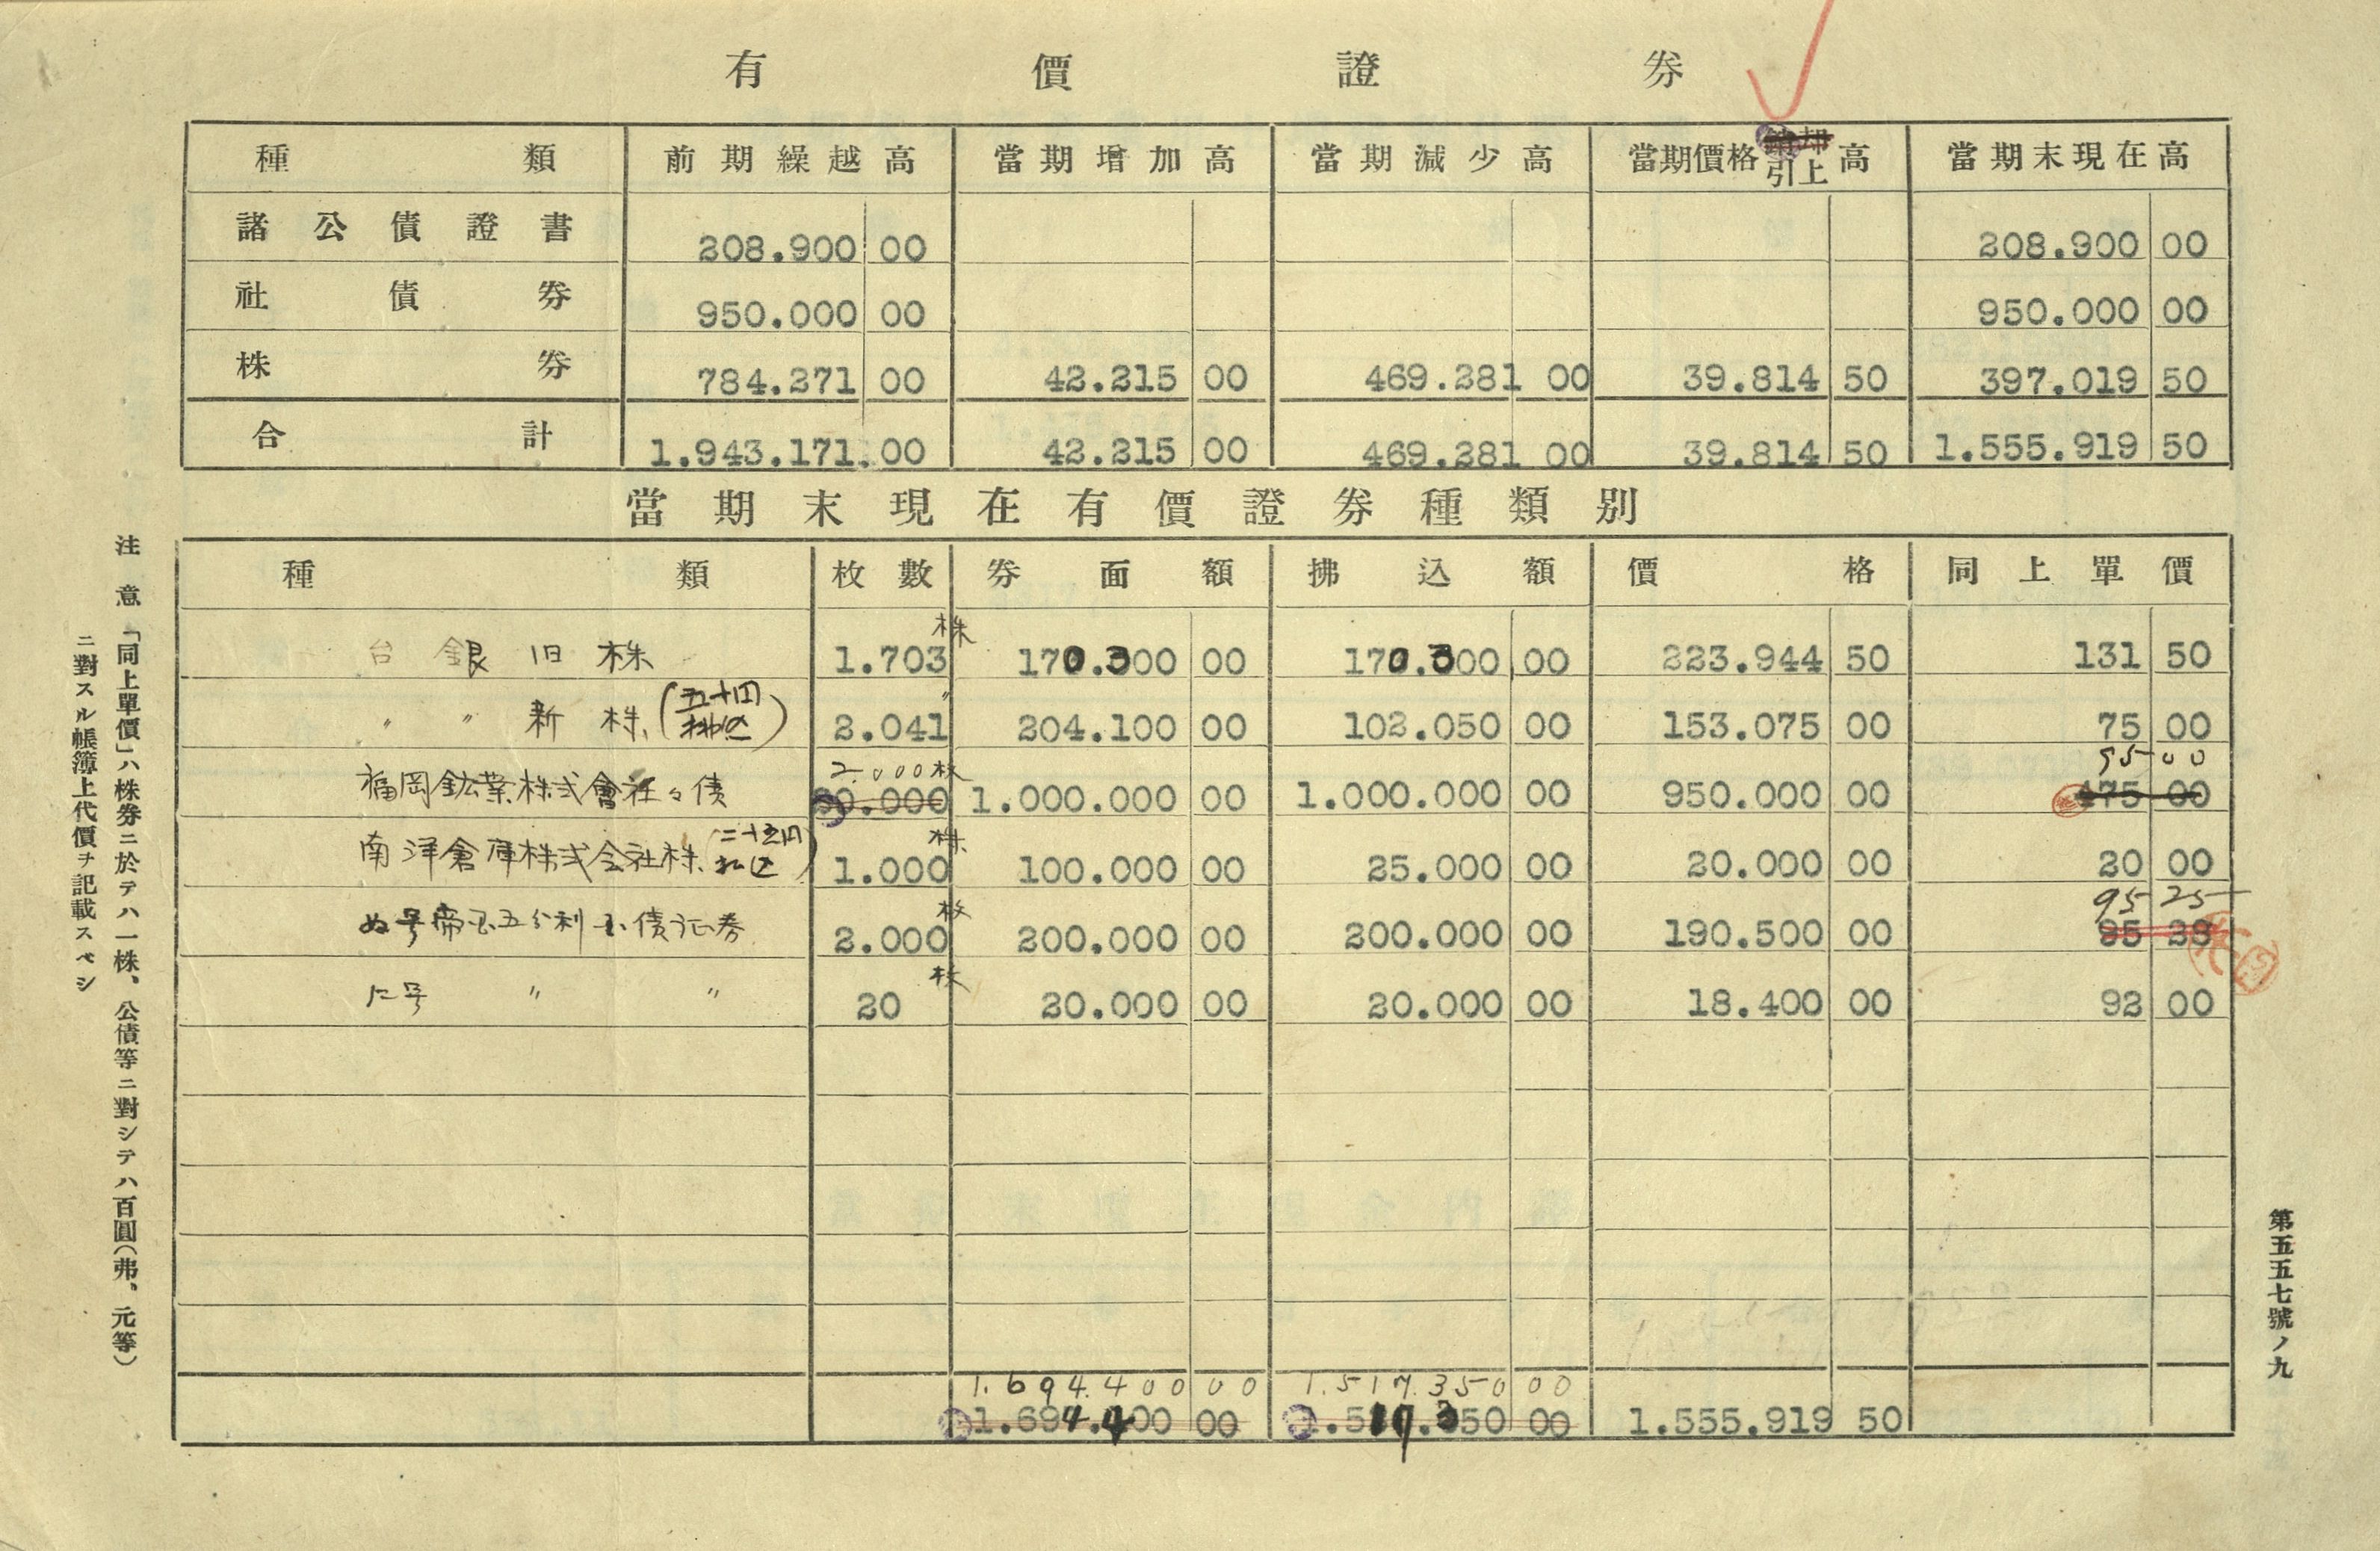 有價證券
種類 前期繰越高 當期增加高 當期減少高 當期價格銷却引上高 當期末現在高
諸公債證書 208.900 00 208.900 00
社債券 950.000 00 950.000 00
株券 784.271 00 42.215 00 469.281 00 39.814 50 397.019 50
合計 1.943.171.00 42.215 00 469.281 00 39.814 50 1.555.919 50
當期末現在有價證券種類別
種類 枚數 券面額 拂込額 價格 同上單價
台銀旧株 1.703株 170.300 00 170.300 00 223.944 50 131 50
〃 〃 新株(五十円拂込) 2.041〃 204.100 00 102.050 00 153.075 00 75 00
福岡鉱業株式會社々債 2.000枚 1.000.000 00 1.000.000 00 950.000 00 95 00
475 00
南洋倉庫株式会社株(二十五円払込) 1.000株 100.000 00 25.000 00 20.000 00 20 00
ぬ号帝国五分利国債証券 2.000枚 200.000 00 200.000 00 190.500 00 95 25
95 28
に号 〃 〃 20枚 20.000 00 20.000 00 18.400 00 92 00
1.694.400 00 1.517.350 00
1.694.400 00 1.517.350 00 1.555.919 50
注意「同上單價」ハ株券ニ於テハ一株、公債等ニ對シテハ百圓(弗、元等)
ニ對スル帳簿上代價ヲ記載スベシ
第五五七號ノ九